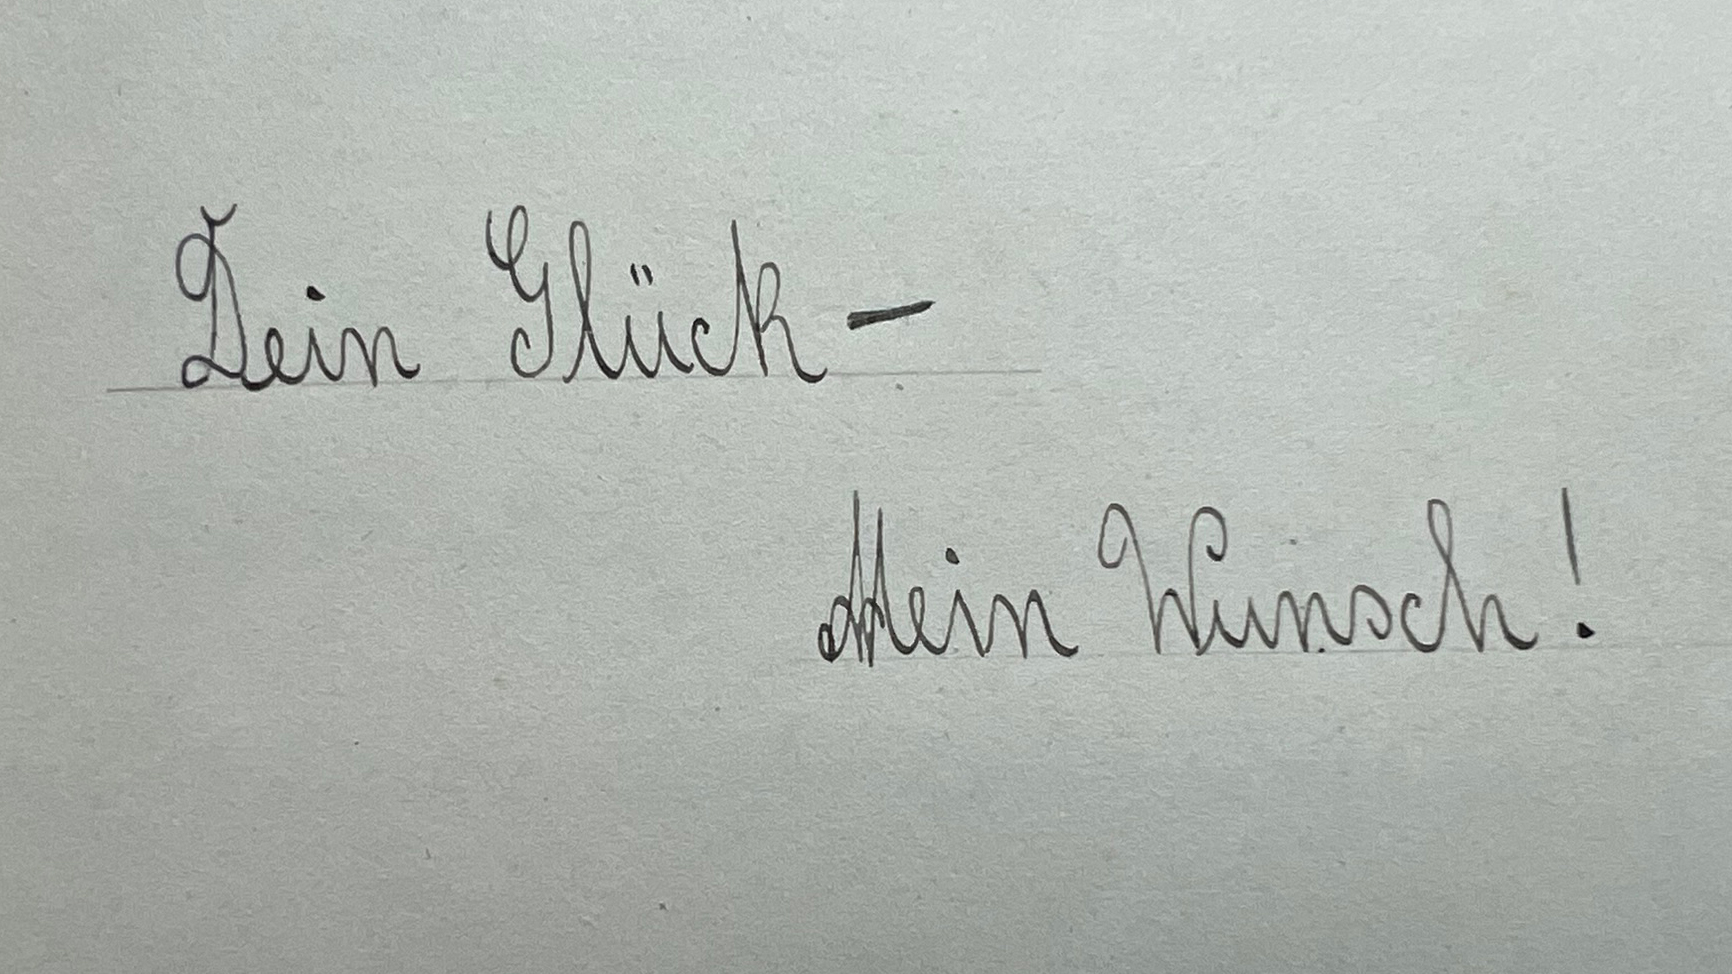 Dein Glück –
Mein Wunsch!